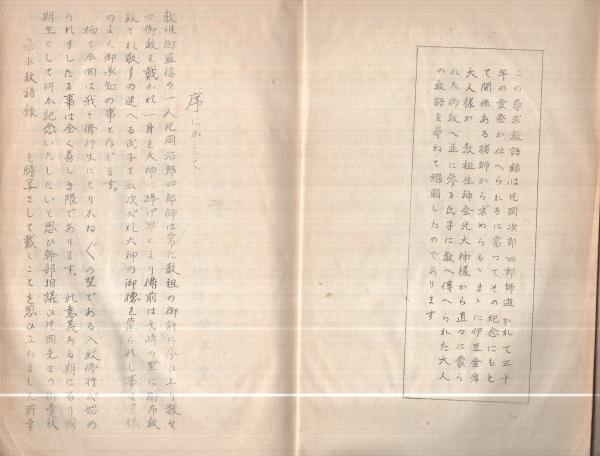 この尋求教語録は片岡次郎四郎師逝かれて三十
年の霊祭が仕へられるに当つてその紀念にもと
て関係ある諸師から求めらるゝまゝに伊豆金孝
大人様が 教祖生神金光大神様から直々に蒙ら
れた御教へ並に参る氏子に教へ傳へられた大人
の教語を尋ねて綴輯したのであります
序にかへて
教祖御直信の一人片岡治郎四郎師は常に教祖の御許に参ひ上り数々
の御教を戴かれ一身を大神に捧げ早くより備前は大崎の里に御布教
致され数多の迷へる氏子を取次がれ大神の御徳を蒙られし事は皆様
のよく御承知の事と存じます。
扨て今回は我々修行生にとりかね〴〵の望である入殿修行が始め
られました事は全く喜しき限であります。此意義ある期に当り同
期生として何か記念いたしたいと思ひ幹部相議ひ片岡先生の
尋求教語録 を謄写さして戴くことを思ひ立ちました所幸